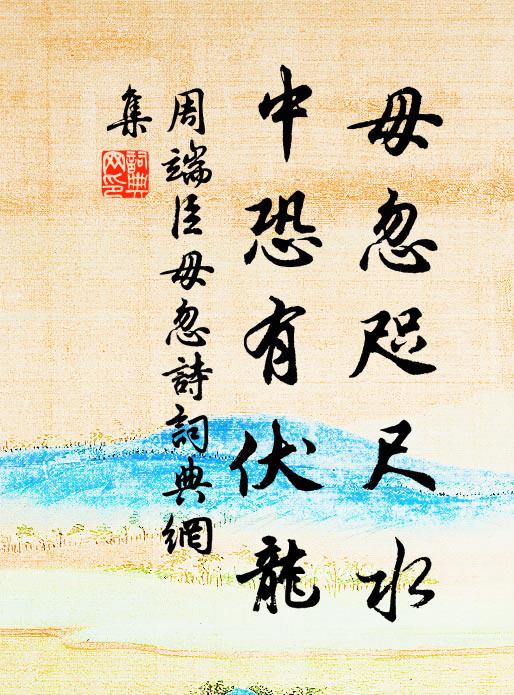 毋忽咫尺水
中恐有伏龍
周端臣毋忽詩詞典網
集
詞典
网印